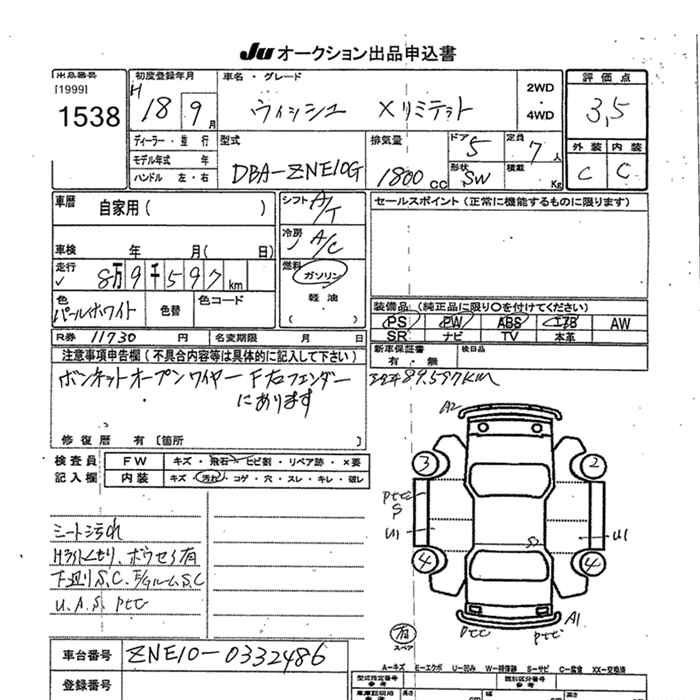 Ju オークション出品申込書
出品番号 初度登録年月 車名・グレード 評価点
[1999] H 2WD
1538 18 9月 ウィッシュ Xリミテット ・ 3,5
4WD
ディーラー・並行 型式 排気量 ドア 5 定員 7人 外装 内装
モデル年式 年 DBA-ZNE10G 1800cc 形状 SW 積載 Kg C C
ハンドル 左・右
車歴 自家用( ) シフト A/T セールスポイント(正常に機能するものに限ります)
冷房 A/C
車検 年 月( 日)
走行 8万9千597km 燃料 ガソリン
色 パールホワイト 色替 色コード 軽油 装備品(純正品に限り○を付けてください)
( ) PS PW ABS エアB AW
R券 11730円 名変期限 月 日 SR ナビ TV 本革
注意事項申告欄(不具合内容等は具体的に記入して下さい) 新車保証書 検印品
有・無
ボンネットオープンワイヤー F右フェンダー 89.597KM
にあります
A2
修復歴 有〔箇所 〕
検査員 FW キズ・飛石・ヒビ割・リペア跡・X要
記入欄 内装 キズ・汚れ・コゲ・穴・スレ・キレ・破レ
3 2
ptc
S
U1 U1
シート汚れ
Hライトくもり、ボウセイ有
下廻りS.C.
U.A.S ptc
4 4
S
有 A1
スペア ptc ptc
車台番号 ZNE10-0332486
A=キズ E=エクボ U=凹み W=補修跡 S=サビ C=腐食 XX=交換済
登録番号 型式指定番号 類別区分番号
参考 参考
車庫証明用 長さ cm 幅 cm 高さ cm